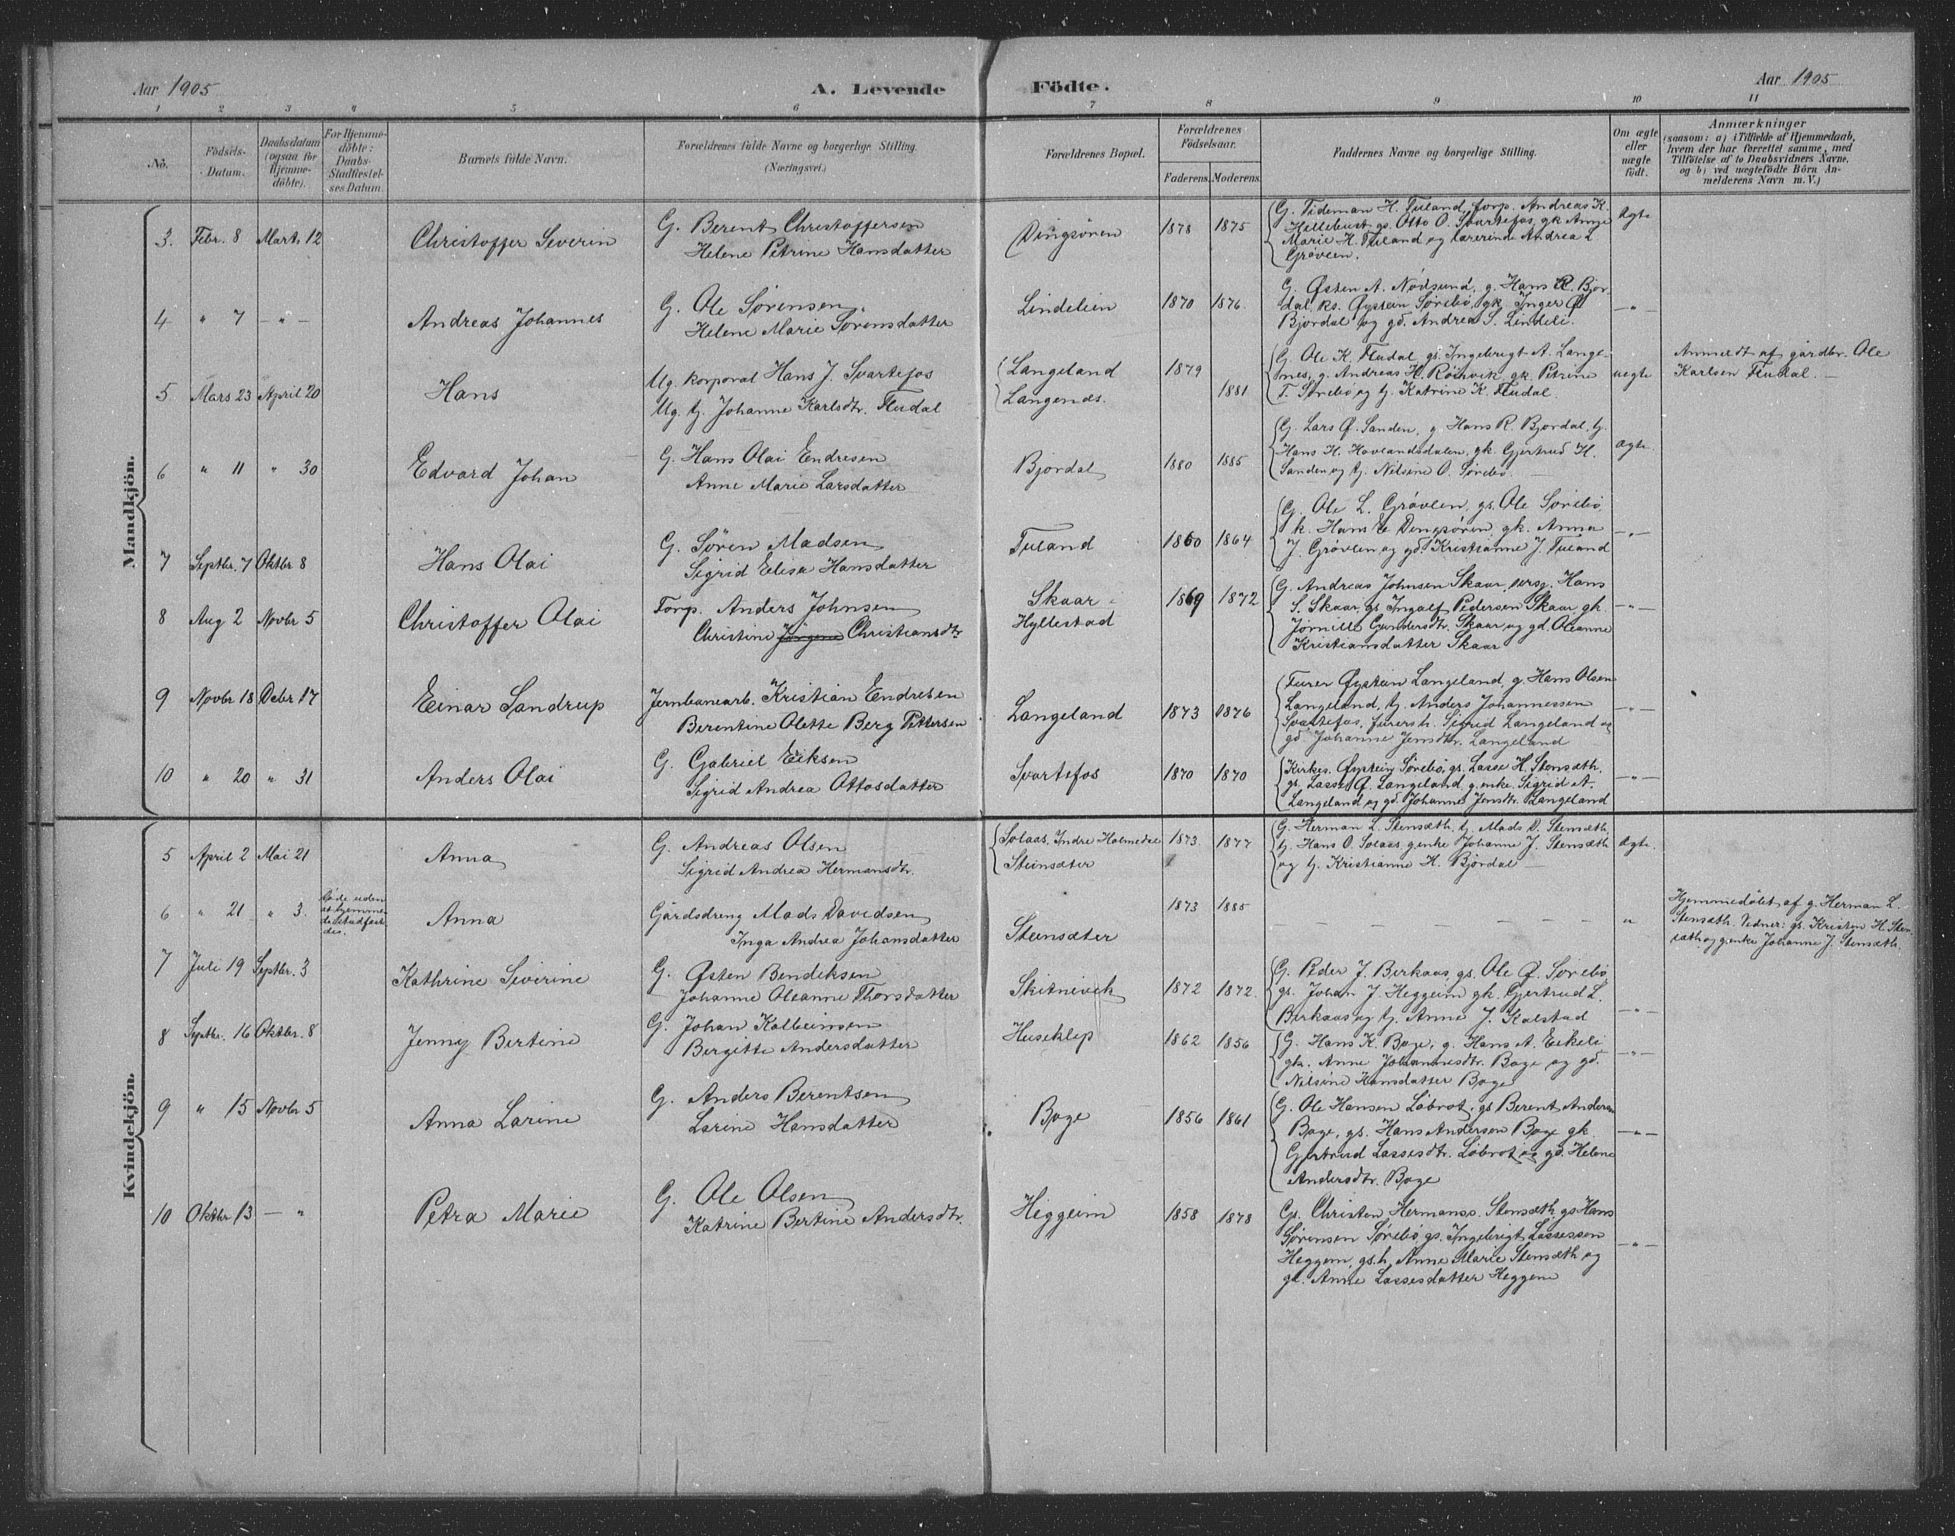 Aar 1905
A. Levende
Födte.
Aar 1905
1 2 3 4 5 6 7 8 9 10 11
No.
Födsels-
Datum.
Daabsdatum
(ogsaa for
Hjemme-
döbte).
For Hjemme-
döbte:
Daabs-
Stadfæstel-
ses Datum.
Barnets fulde Navn.
Forældrenes fulde Navne og borgerlige Stilling.
(Næringsvei.)
Forældrenes Bopæl.
Forældrenes
Födselsaar.
Faderens. Moderens.
Faddernes Navne og borgerlige Stilling.
Om ægte
eller
uægte
födt.
Anmærkninger
(saasom: a) i Tilfælde af Hjemmedaab,
hvem der har forrettet samme, med
Tilföielse af to Daabsvidners Navne,
og b) ved uægtefödte Börn An-
melderens Navn m. V.)
Mandkjön.
3. Febr. 8 Marts 12 Christoffer Severin
G. Berent Christoffersen
Helene Petrine Hansdatter
Dingsören 1878 1875
G. Tideman H. Tuland, forp. Andreas K.
Hellebust gs. Otto O. Svartefos, gk. Anne
Marie H. Tuland og lærerinde Andrea L
Grövlen.
Ægte
4 " 7 — " — Andreas Johannes
G. Ole Sørensen
Helene Marie Sørensdatter
Lindelien 1870 1876
G. Østen A. Nødsund, g. Hans R. Bjor
dal, ks. Øystein Sørebø, gk. Inger Ø
Bjordal og gd. Andrea S. Lindeli.
— " —
5 Mars 23 April 20 Hans
Ug. korporal Hans J. Svartefos
Ug. tj. Johanne Karlsdtr. Fludal
Langeland
Langenes.
1879 1881
G. Ole K. Fludal, gs. Ingebrigt A. Lange-
nes, g. Andreas H. Röisvik, gk. Petrine
T. Sørebø og tj. Katrine K. Fludal.
uægte
Anmeldt af gårdbr. Ole
Karlsen Fludal. —
6 " 11 " 30 Edvard Johan
G. Hans Olai Endresen
Anne Marie Larsdatter
Bjordal 1880 1885
G. Lars Ø. Sanden, g. Hans R. Bjordal, tj.
Hans H. Hovlandsdalen, gk. Gjertrud H.
Sanden og tj. Nilsine O. Sørebø.
Ægte.
7 Septbr. 7 Oktbr 8 Hans Olai
G. Søren Madsen
Sigrid Elise Hansdatter
Tuland 1860 1864
G. Ole L. Grövlen, gs. Ole Sørebø,
k. Hans E Dengsören, gk. Anna
J. Grövlen og gd. Kristianne J. Tuland
— " —
8 Aug 2 Novbr 5 Christoffer Olai
Forp. Anders Johnsen
Christine Jörgine Christiansdtr
Skaar -
Hyllestad
1869 1872
G. Andreas Johnsen Skaar, Hans
S. Skaar, gs. Ingolf Pedersen Skaar, gk.
Jörnille Gundersdtr. Skaar, og gd. Oleanne
Kristiansdatter Skaar
— " —
9 Novbr 18 Debr 17 Einar Sandrup
Jernbanearb. Kristian Endresen
Berentine Olette Berg Pettersen
Langeland 1873 1876
Furer Øystein Langeland, g. Hans Olsen
Langeland, tj. Anders Johannessen
Svartefos, furersk. Sigrid Langeland og
gd. Johanne Jensdtr. Langeland
— " —
10 " 20 " 31 Anders Olai
G. Gabriel Eiksen
Sigrid Andrea Ottosdatter
Svartefos 1870 1870
Kirkes. Øystein Sørebø, gs. Lasse H. Stensæth,
gs. Lasse Ø. Langeland, g. enke. Sigrid A.
Langeland og gd. Johanne Jensdtr. Langeland
— " —
Kvindekjön.
5 April 2 Mai 21 Anna
G. Andreas Olsen
Sigrid Andrea Hermansdtr.
Solaas, Indre Holmedal
Steinsæter
1873 1877
G. Herman L. Stensæth, tj. Mads D. Stensæth,
tj. Hans O. Solaas, g. enke Johanne J. Stensæth
og tj. Kristianne H. Bjordal —
Ægte.
6 " 21 " 3.
Døde uden
at hjemme-
d. stadfæst-
des.
Anna
Gårdsdreng Mads Davidsen
Inga Andrea Johansdatter
Steinsæter 1873 1885
— — — — —
"
Hjemmedøbt af g. Herman L.
Stensæth. Vidner: gs. Kristen H. Sten-
sæth og g. enke Johanne J. Stensæth.
7 Juli 19 Septbr. 3 Kathrine Severine
G. Østen Bendiksen
Johanne Oleanne Thorsdatter
Skitnevik 1872 1872.
G. Peder J. Birkaas, gs. Ole Ø. Sørebø
gs. Johan J. Heggeim gk. Gjertrud L.
Birkaas og tj. Anne J. Kalstad
— " —
8 Septbr. 16 Oktbr. 8 Jenny Bertine
G. Johan Kolbeinsen
Bergitte Andersdatter
Huseklep 1862 1856
G. Hans K. Bøge, g. Hans A. Eikeli
gk. Anne Johannesdtr. Bøge og gd.
Nilsine Hansdatter Bøge
— " —
9 " 15 Novbr 5 Anna Larine
G. Anders Berentsen
Larine Hansdatter
Bøge 1856 1861
G. Ole Hansen Löbrot, gs Berent Anders
Bøge, gs. Hans Andersen Bøge gk
Gjertrud Lassesdtr. Löbrot og gd. Helene
Andersdtr. Bøge
— " —
10 Oktbr 13 — " Petra Marie
G. Ole Olsen
Katrine Bertine Andersdtr.
Heggeim 1858 1878
Gs. Christen Hermanss. Stensæth gs Hans
Sörensen Sørebø gs. Ingebrigt Lassessen
Heggem, gs. h. Anne Marie Stensæth og
gd. Anne Lassesdatter Heggene
— " —